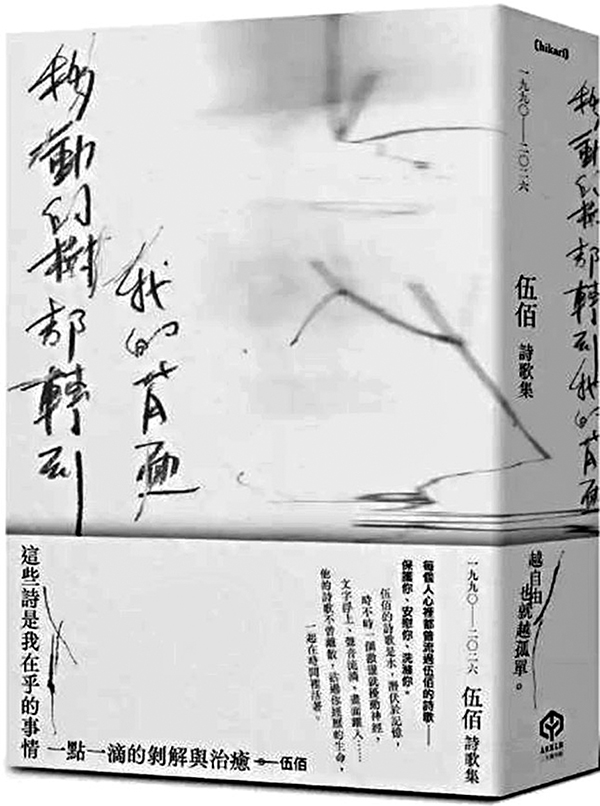 移動的樹都轉到
我的背面
(hikari)
一九九〇——二〇二六
伍佰 詩歌集
移動的樹都轉到我的背面
每個人心裡都曾流過伍佰的詩歌——
保護你、安慰你、洗滌你。
伍佰的詩歌是水，潛伏於記憶，
時不時一個激靈就擾動神經，
文字浮上、聲音流淌、畫面鑽入……
他的詩歌不曾離散，活過你經歷的生命，
一起在時間裡活著。
這些詩是我在乎的事情
一點一滴的剝解與治癒
伍佰
越自由
也就越孤單。
一九九〇——二〇二六
伍佰 詩歌集